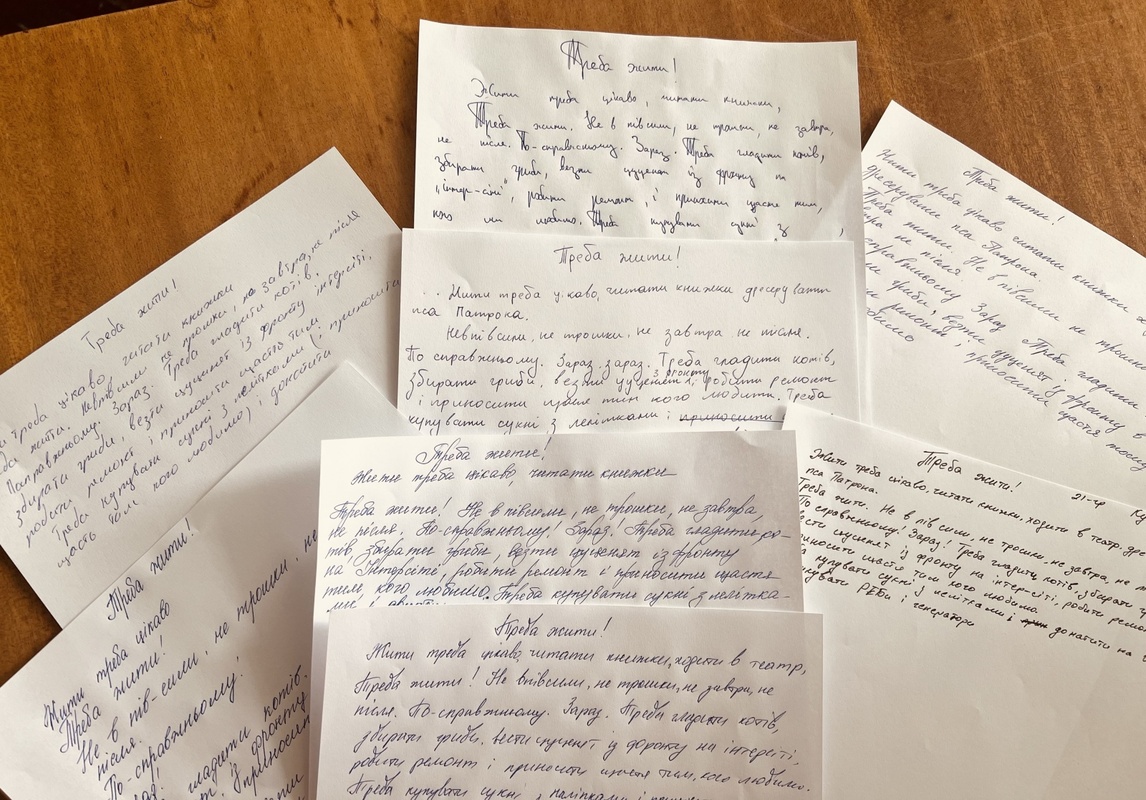 Треба жити!
Жити треба цікаво, читати книжки,
Треба жити. Не в півсили, не трошки, не завтра,
не після. По-справжньому. Зараз. Треба гладити котів,
збирати гриби, везти цуценя із фронту на
"інтер-сіті", робити ремонт і приносити щастя тим,
кого ми любимо. Треба купувати сукні з
Треба жити!
Жити треба цікаво, читати книжки дресерувати
пса Патрона.
Невпівсили, не трошки, не завтра не після.
По справжньому. Зараз, зараз. Треба гладити котів,
збирати гриби, везти цуценят з фронту, робити ремонт
і приносити щастя тим кого любити. Треба
купувати сукні з лелітками і приносити
Треба жити!
Жити треба цікаво, читати книжки
Треба жити. Невпівсили не трошки, не завтра, не після
Зараз. Треба гладити котів.
збирати гриби, везти цуценят із фронту інтерсіті,
робити ремонт і приносити щастя тим
Треба купувати сукні з лелітками (приносити
щасть тому, кого любимо) і донатити
Треба жити!
Жити треба цікаво читати книжки
дресерувати пса Патрона.
Треба жити. Не в півсили не трошки
не після
справжньому Зараз
Треба гладити
гриби, везти цуценят із фронту
ремонт, приносити щастя тому
любимо
Треба жити!
Жити треба цікаво, читати книжки
Треба жити! Не в півсили, не трошки, не завтра,
не після. По-справжньому! Зараз! Треба гладити ко-
тів, збирати гриби, везти цуценят із фронту
на Інтерсіте, робити ремонт і приносити щастя
тим, кого любимо. Треба купувати сукні з лелітка-
ми і
Треба жити!
21-гр
Жити треба цікаво, читати книжки, ходити в театр,
пса Патрона.
Треба жити. Не в пів сили, не трошки, не завтра, не
По справжньому! Зараз! Треба гладити котів, збирати
везти цуценят із фронту на інтер-сіті, робити
приносити щастя тим кого любимо
купувати сукні з лелітками і донатити на
РЕБи і генератори
Треба жити!
Жити треба цікаво
Треба жити!
Не в пів-сили, не трошки, не
після.
По-справжньому!
гладити котів.
фронту
приносит
Треба жити!
Жити треба цікаво, читати книжки, ходити в театр,
Треба жити! Не впівсили, не трошки, не завтра, не
після. По-справжньому. Зараз. Треба гладити котів,
збирати гриби. Вести цуценят із фронту на інтерсіті,
робити ремонт і приносити щастя тим, кого любимо.
Треба купувати сукні з паліпками і